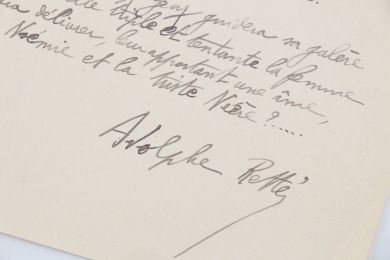 guidera sa galère
triple et tentante la femme
délivrer, leur apportant une âme,
Noémie et la triste Nééra ?.....
Adolphe Retté